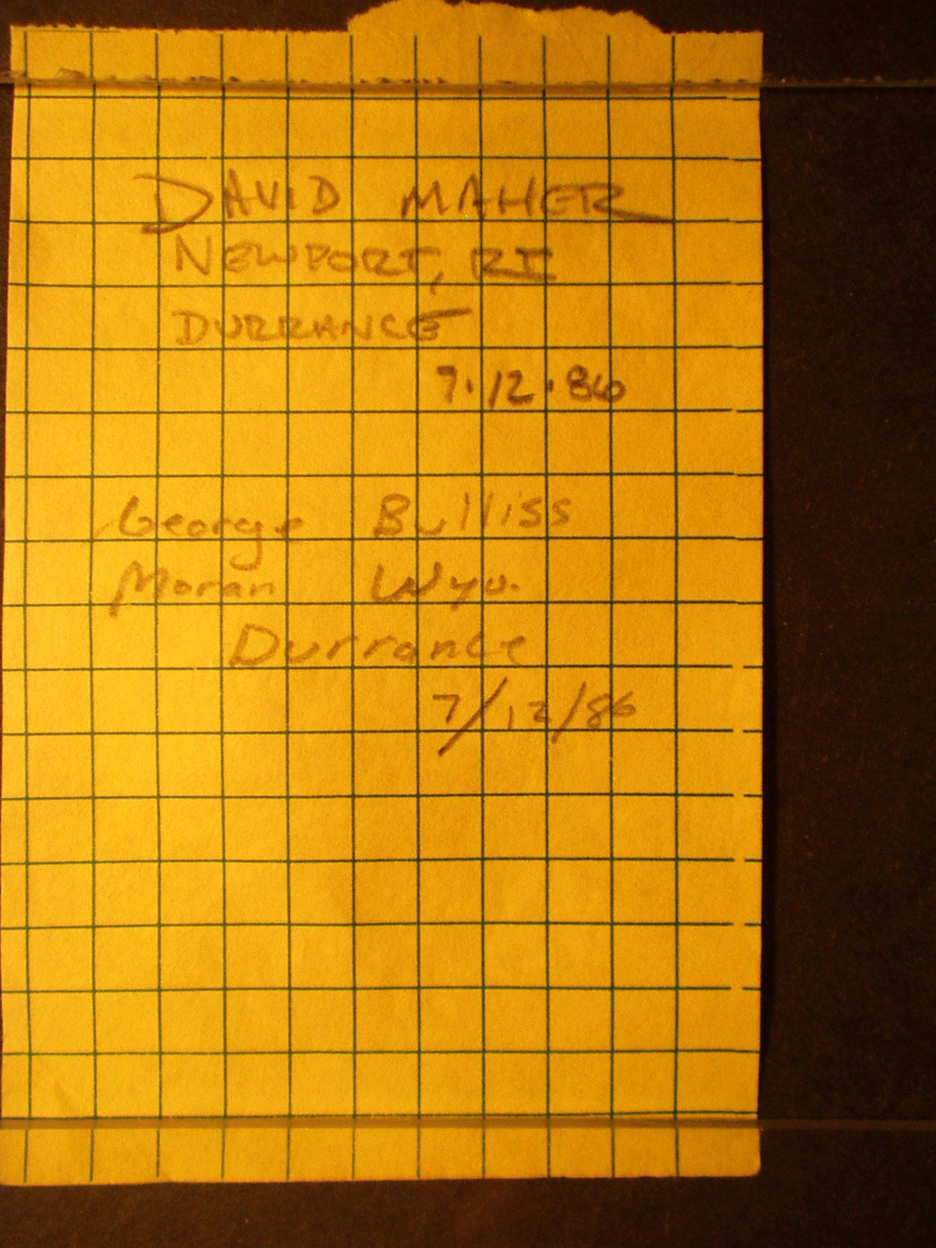 DAVID MAHER
NEWPORT, RI
DURRANCE
7.12.86
George Bulliss
Moran Wyo.
Durrance
7/12/86